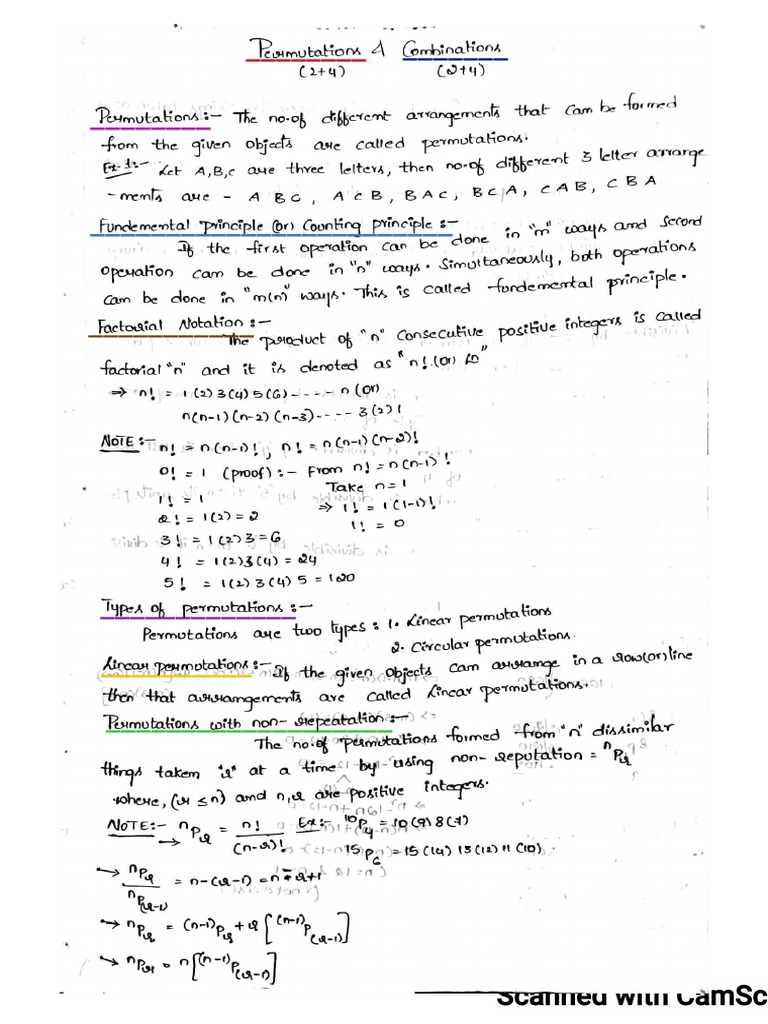 Permutations & Combinations
(2+4) (2+4)
Permutations:- The no.of different arrangements that can be formed
from the given objects are called permutations.
Ex-1:- Let A,B,C are three letters, then no.of different 3 letter arrange
-ments are - A B C, A C B, B A C, B C A, C A B, C B A
Fundemental principle (or) Counting principle :-
If the first operation can be done in "m" ways and second
operation can be done in "n" ways. Simultaneously, both operations
can be done in "m(n)" ways. This is called fundemental principle.
Factorial Notation :-
The product of "n" consecutive positive integers is called
factorial "n" and it is denoted as "n! (or) ⌊n"
⇒ n! = 1(2)3(4)5(6)------n (or)
n(n-1)(n-2)(n-3)----- 3(2)1
NOTE:- n! = n(n-1)!, n! = n(n-1)(n-2)!
0! = 1 (proof):- From n! = n(n-1)!
Take n=1
1! = 1 ⇒ 1! = 1(1-1)!
2! = 1(2) = 2 1! = 0
3! = 1(2)3 = 6
4! = 1(2)3(4) = 24
5! = 1(2)3(4)5 = 120
Types of permutations :-
Permutations are two types : 1. Linear permutations
2. Circular permutations.
Linear permutations :- If the given objects can arrange in a row(or)line
then that arrangements are called Linear permutations.
Permutations with non-repeatation :-
The no.of permutations formed from "n" dissimilar
things taken "r" at a time by using non-reputation = ⁿPᵣ
where, (r ≤ n) and n,r are positive integers.
NOTE:- → ⁿPᵣ = n!/(n-r)! Ex:- ¹⁰P₄ = 10(9)8(7)
¹⁵P₆ = 15(14)13(12)11(10)
→ ⁿPᵣ/ⁿP₍ᵣ₋₁₎ = n-(r-1) = n-r+1
→ ⁿPᵣ = ⁽ⁿ⁻¹⁾Pᵣ + r[⁽ⁿ⁻¹⁾P₍ᵣ₋₁₎]
→ ⁿPᵣ = n[⁽ⁿ⁻¹⁾P₍ᵣ₋₁₎]
Scanned with CamSc